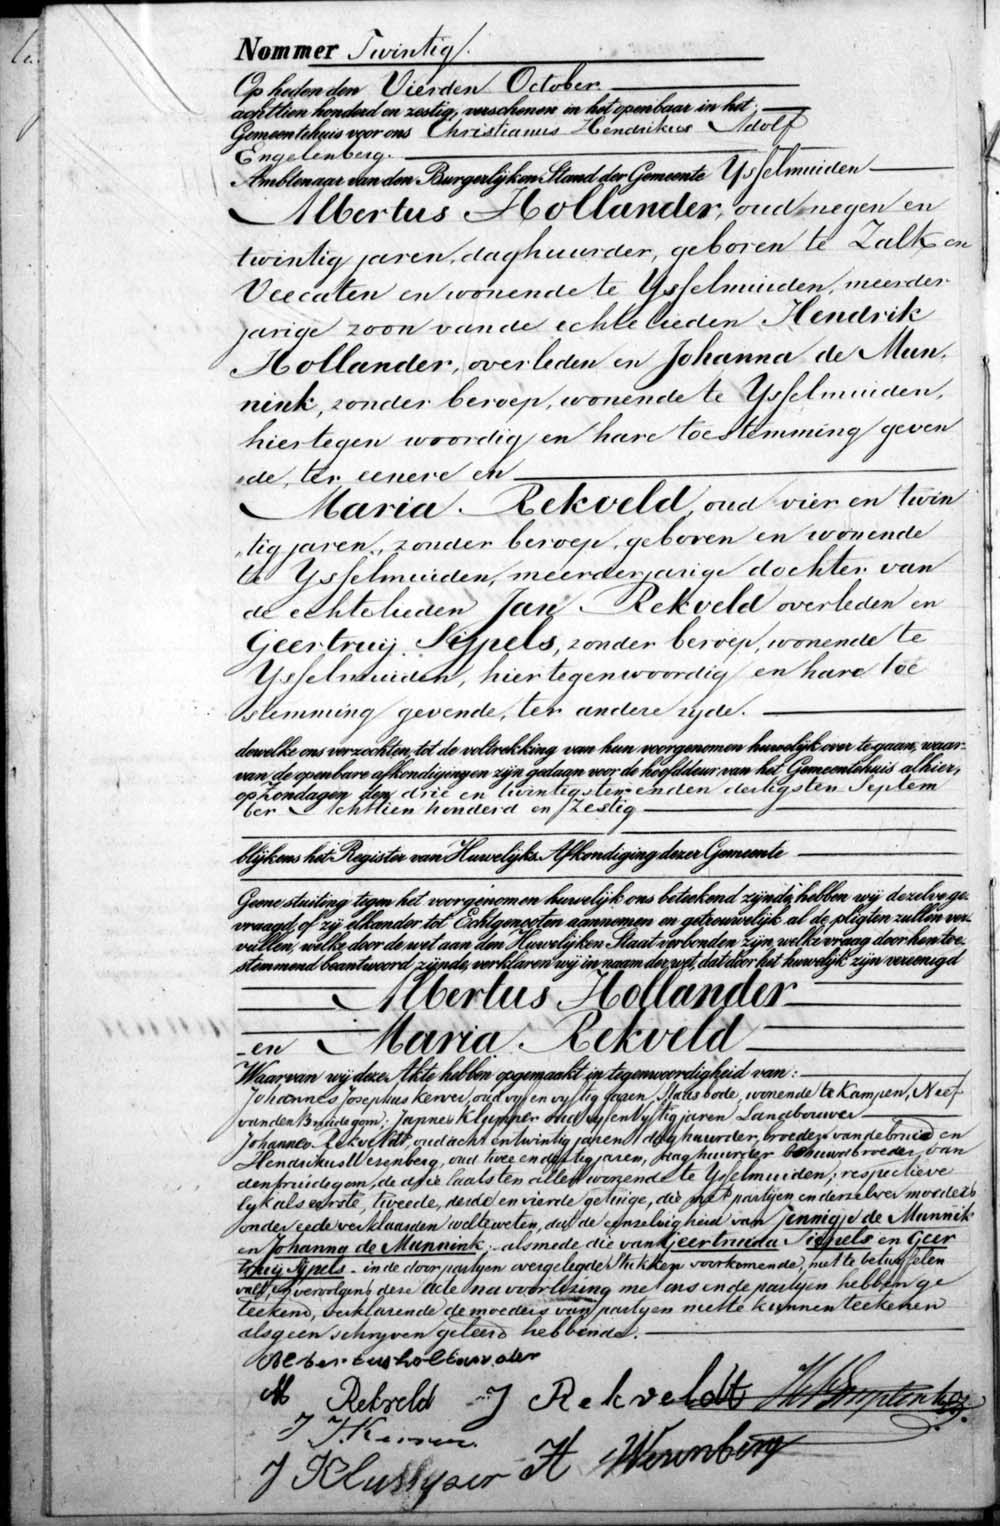 Nommer Twintig.
Op heden den Vierden October
achttien honderd en zestig, verschenen in het openbaar in het
Gemeentehuis voor ons Christianus Hendrikus Adolf
Engelenberg.
Ambtenaar van den Burgerlijken Stand der Gemeente Ysselmuiden
Albertus Hollander, oud negen en
twintig jaren, daghuurder, geboren te Zalk en
Veecaten en wonende te Ysselmuiden, meerder
jarige zoon van de echtelieden Hendrik
Hollander, overleden en Johanna de Mun,
nink, zonder beroep, wonende te Ysselmuiden,
hiertegen woordig en hare toestemming geven
de, ter eenere en
Maria Rekveld, oud vier en twin
tig jaren, zonder beroep, geboren en wonende
te Ysselmuiden, meerderjarige dochter van
de echtelieden Jan Rekveld overleden en
Geertruij Sijpels, zonder beroep, wonende te
Ysselmuiden, hiertegenwoordig en hare toe
stemming gevende, ter andere zijde.
dewelke ons verzochten, tot de voltrekking van hun voorgenomen huwelijk over te gaan, waar-
van de openbare afkondigingen zijn gedaan voor de hoofddeur van het Gemeentehuis alhier,
op Zondagen den drie en twintigsten en den dertigsten Septem
ber Achttien honderd en Zestig
blijkens het Register van Huwelijks Afkondiging dezer Gemeente
Geene stuiting tegen het voorgenomen huwelijk ons beteekend zijnde, hebben wij dezelve ge-
vraagd, of zij elkander tot Echtgenooten aannemen en getrouwelijk al de pligten zullen ver-
vullen, welke door de wet aan den Huwelijken Staat verbonden zijn, welke vraag door hen toe-
stemmend beantwoord zijnde, verklaren wij in naam der wet, dat door het huwelijk zijn vereenigd
Albertus Hollander
en Maria Rekveld
Waarvan wij deze Akte hebben opgemaakt in tegenwoordigheid van:
Johannes Josephus Kerver, oud vijf en vijftig jaren, Stadsbode, wonende te Kampen, Neef
van den Bruidegom; Jannes Klumper oud vijftig jaren Landbouwer
Johannes Rekveldt, oud acht en twintig jaren daghuurder, broeder van de bruid en
Hendrikus Wesenberg, oud twee en dertig jaren, daghuurder behuwdbroeder van
den bruidegom, de drie laatsten allen wonende te Ysselmuiden; respectieve
lijk als eerste, tweede, derde en vierde getuige, die met partijen en derzelver moeders
onder eede verklaarden wel te weten, dat de eenzelvigheid van Jennigje de Munnik
en Johanna de Munnink, alsmede die van Geertruida Sijpels en Geer
truij Sijpels in de door partijen overgelegde Stukken voorkomende, niet te betwijfelen
valt, en vervolgens deze acte na voorlezing met ons en de partijen hebben ge
teekend, verklarende de moeders van partyen niet te kunnen teekenen
als geen schrijven geleerd hebbende.
Albertus hollander
M Rekveld J Rekveldt
J J. Kerver
J Klumper H Wesenberg